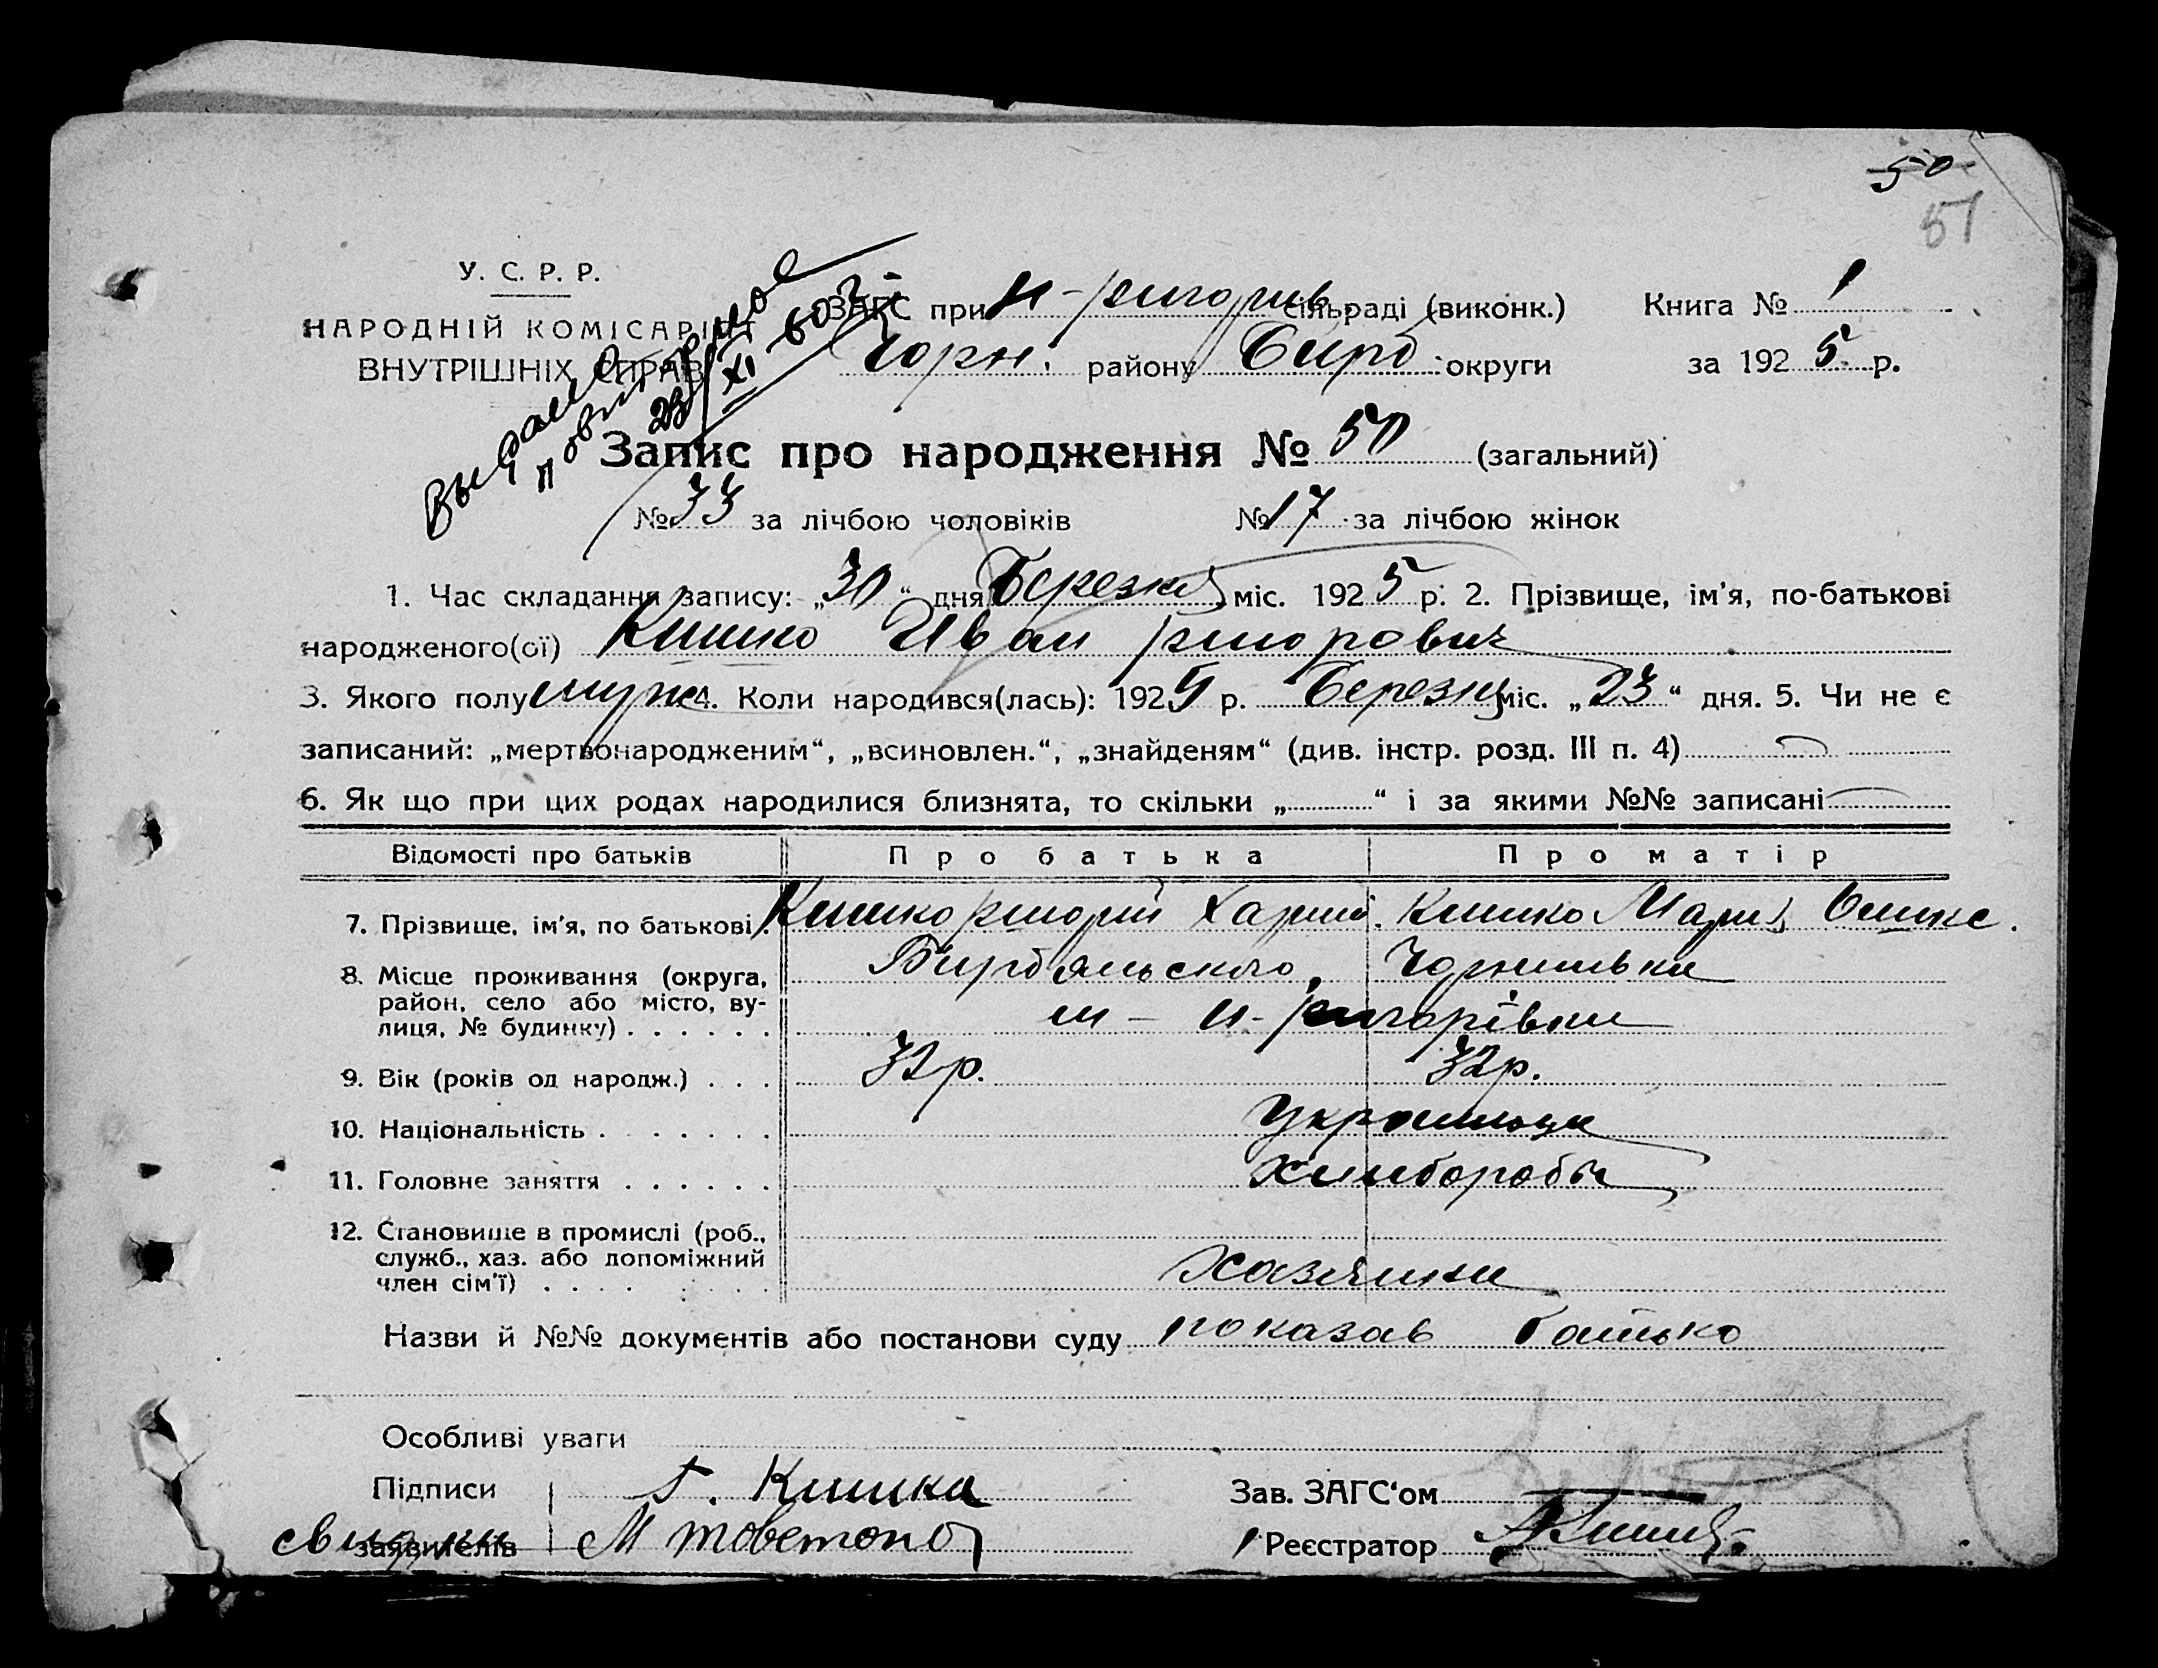 50
51
У. С. Р. Р.
НАРОДНІЙ КОМІСАРІЯТ
ВНУТРІШНІХ СПРАВ
выдано
повторное
23/XI-60г.
ЗАГС при Н-григорів сільраді (виконк.) Книга № 1
Чорн. району Бирд. округи за 1925 р.
Запис про народження № 50 (загальний)
№ 33 за лічбою чоловіків № 17 за лічбою жінок
1. Час складання запису: „30“ дня Березня міс. 1925 р. 2. Прізвище, ім'я, по-батькові
народженого(ої) Кишко Иван григорович
3. Якого полу муж 4. Коли народився(лась): 1925 р. Березня міс. „23“ дня. 5. Чи не є
записаний: „мертвонародженим“, „всиновлен.“, „знайденям“ (див. інстр. розд. III п. 4)
6. Як що при цих родах народилися близнята, то скільки „ “ і за якими №№ записані
Відомості про батьків Про батька Про матір
7. Прізвище, ім'я, по батькові. Кишко григорій Харит. Кишко Мария
8. Місце проживання (округа, Бирдянського, Чорнишвки
район, село або місто, ву-
лиця, № будинку) . . . . . . Н-григорівки
9. Вік (років од народж.) . . . 32р. 32р.
10. Національність . . . . . . . Українци
11. Головне заняття . . . . . . Хлиборобы
12. Становище в промислі (роб.,
служб., хаз. або допоміжний
член сім'ї) . . . . . . . . Хазяини
Назви й №№ документів або постанови суду показав батько
Особливі уваги
Підписи Г. Кишка Зав. ЗАГС'ом
свидетели
заявителів Реєстратор